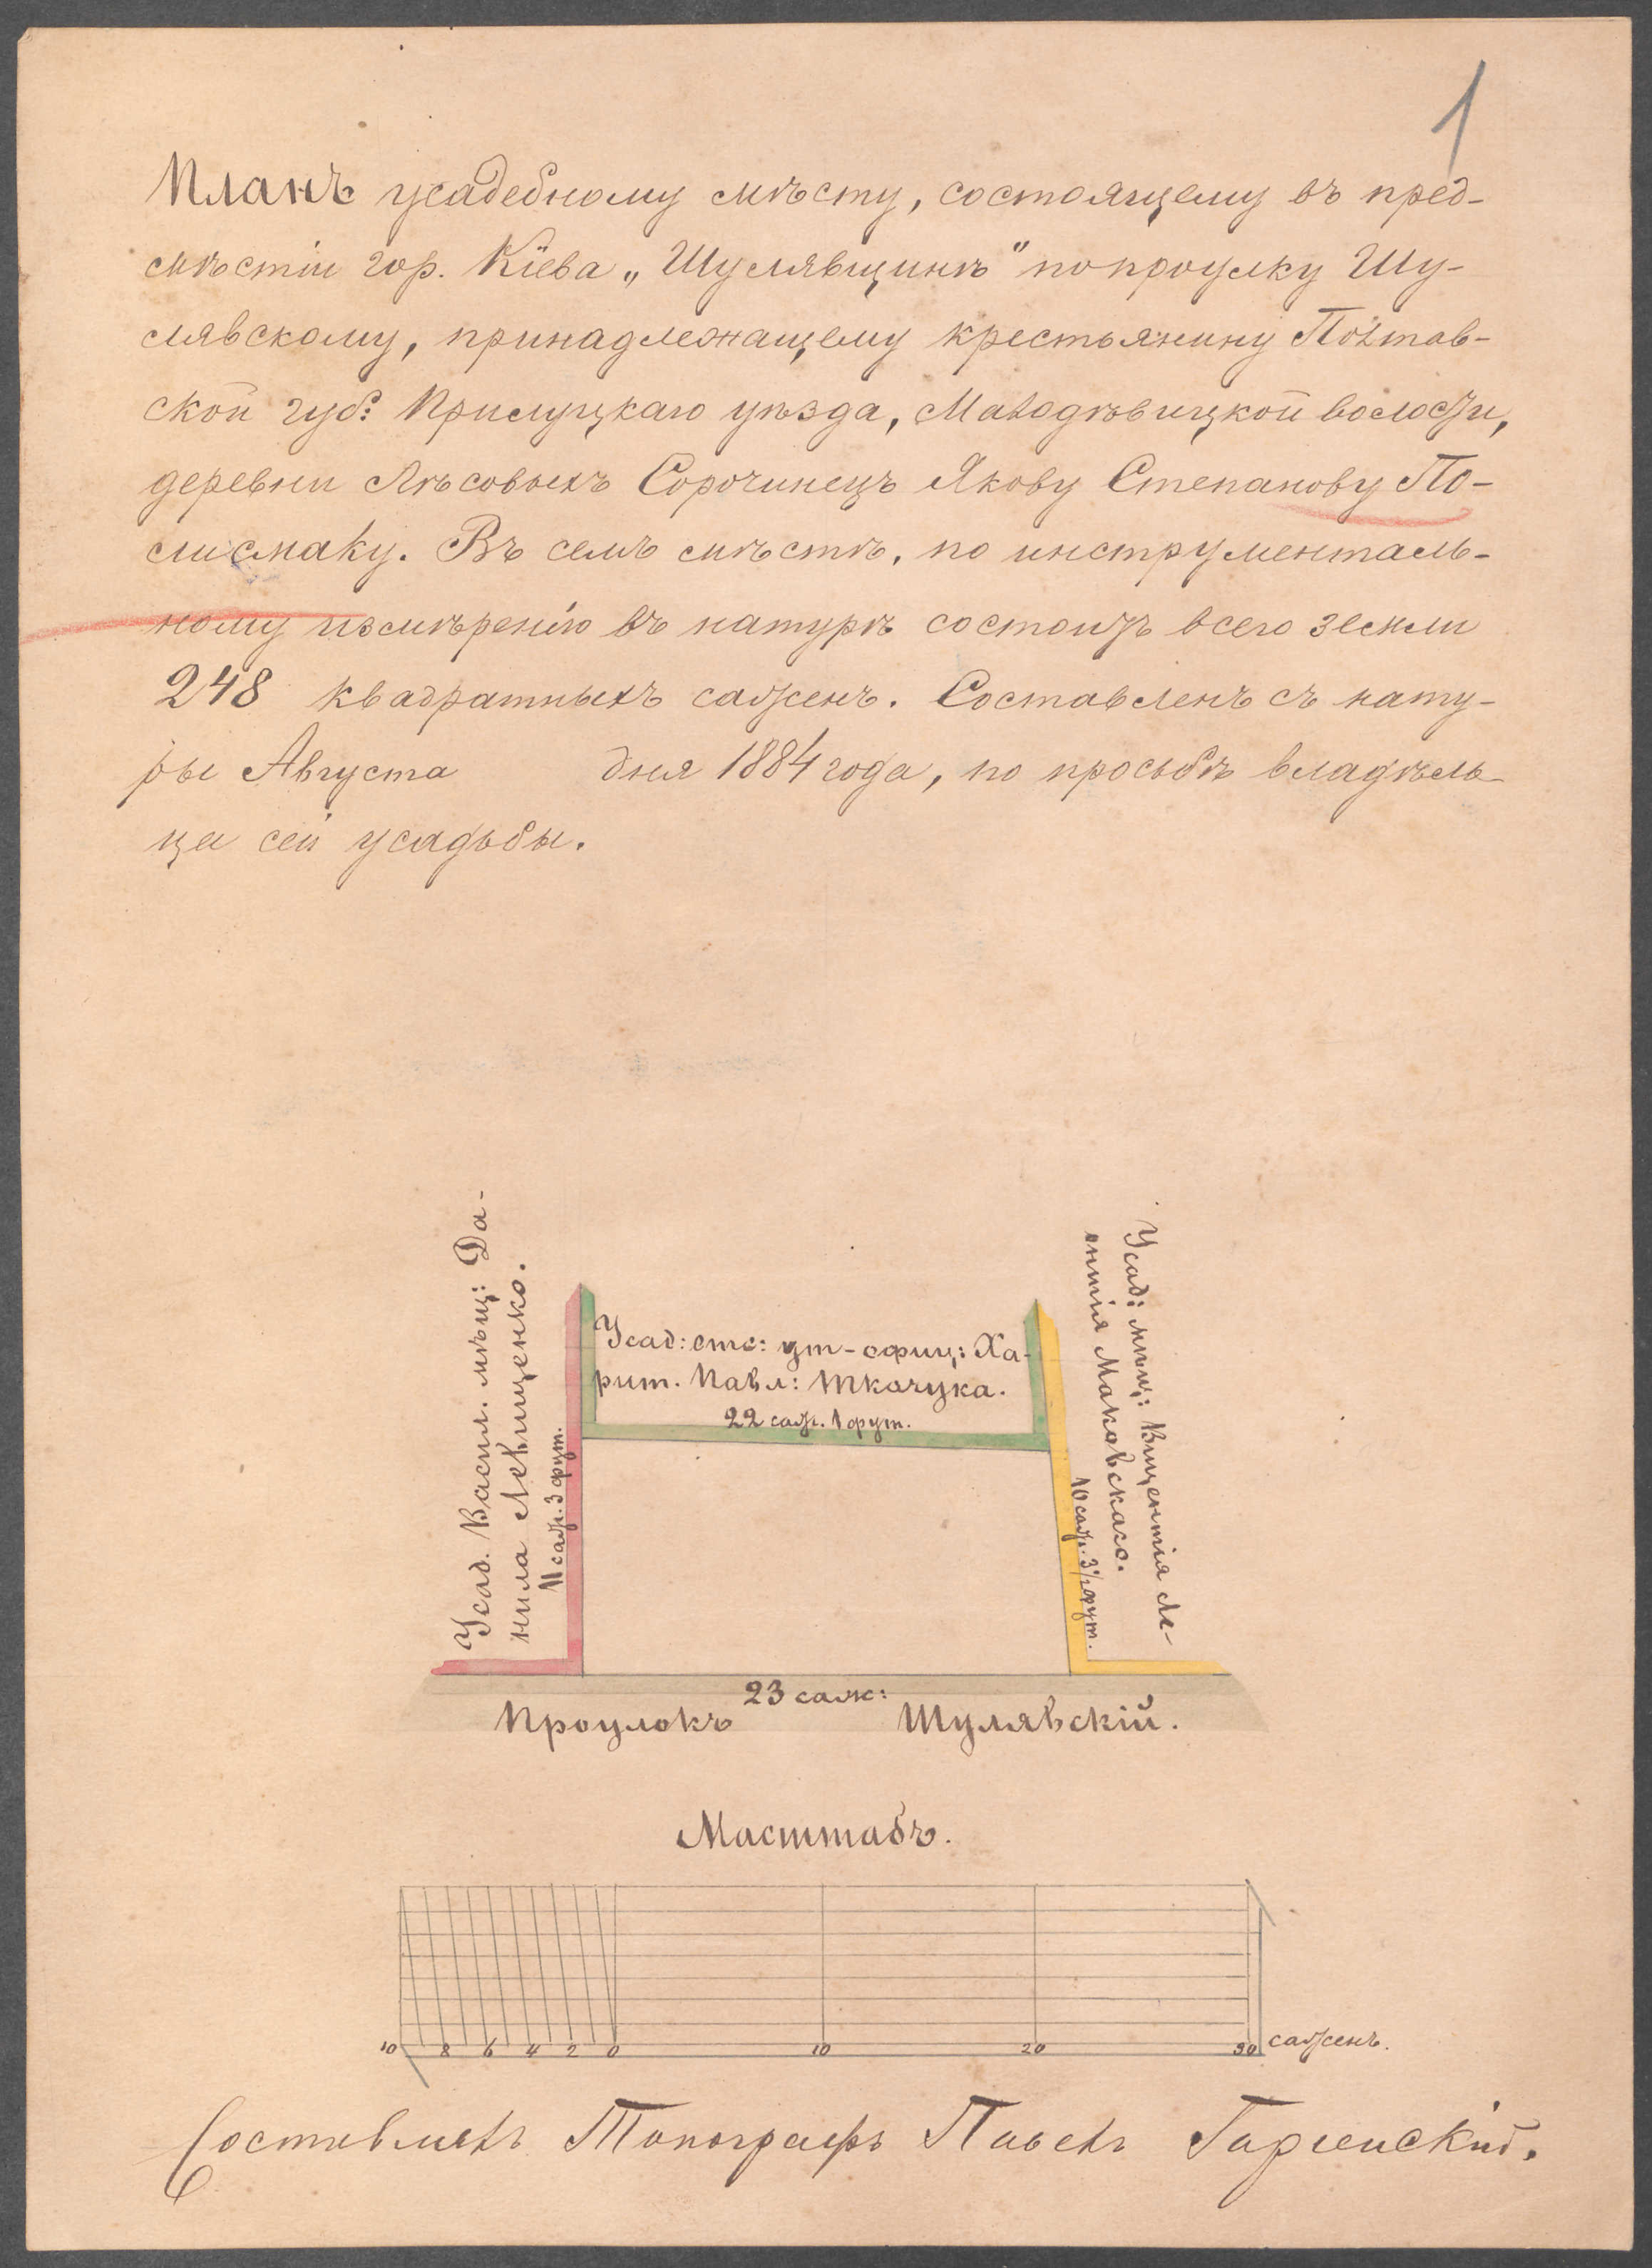 1
Планъ усадебному мѣсту, состоящему въ пред-
мѣстіи гор. Кіева „Шулявщинѣ" по проулку Шу-
лявскому, принадлежащему крестьянину Полтав-
ской губ: Прилуцкаго уѣзда, Мадѣвицкой волости,
деревни Лѣсовыхъ Сорочинецъ Якову Степанову По-
лисмаку. Въ семъ мѣстѣ, по инструменталь-
ному измѣренію въ натурѣ состоитъ всего земли
248 квадратныхъ сажень. Составленъ съ нату-
ры Августа дня 1884 года, по просьбѣ владѣль-
ца сей усадьбы.
Усад. Васил. мѣщ: Да-
нила Левищенко.
11 саж. 3 фут.
Усад: отс: ун-офиц: Ха-
рит. Павл: Ткачука.
22 саж. 1 фут.
Усад: мѣщ: Вицентія Ле-
онтія Маковскаго.
10 саж. 3½ фут.
23 саж:
Проулокъ Шулявскій.
Масштабъ.
10 8 6 4 2 0 10 20 30 сажень.
Составилъ Топографъ Павелъ